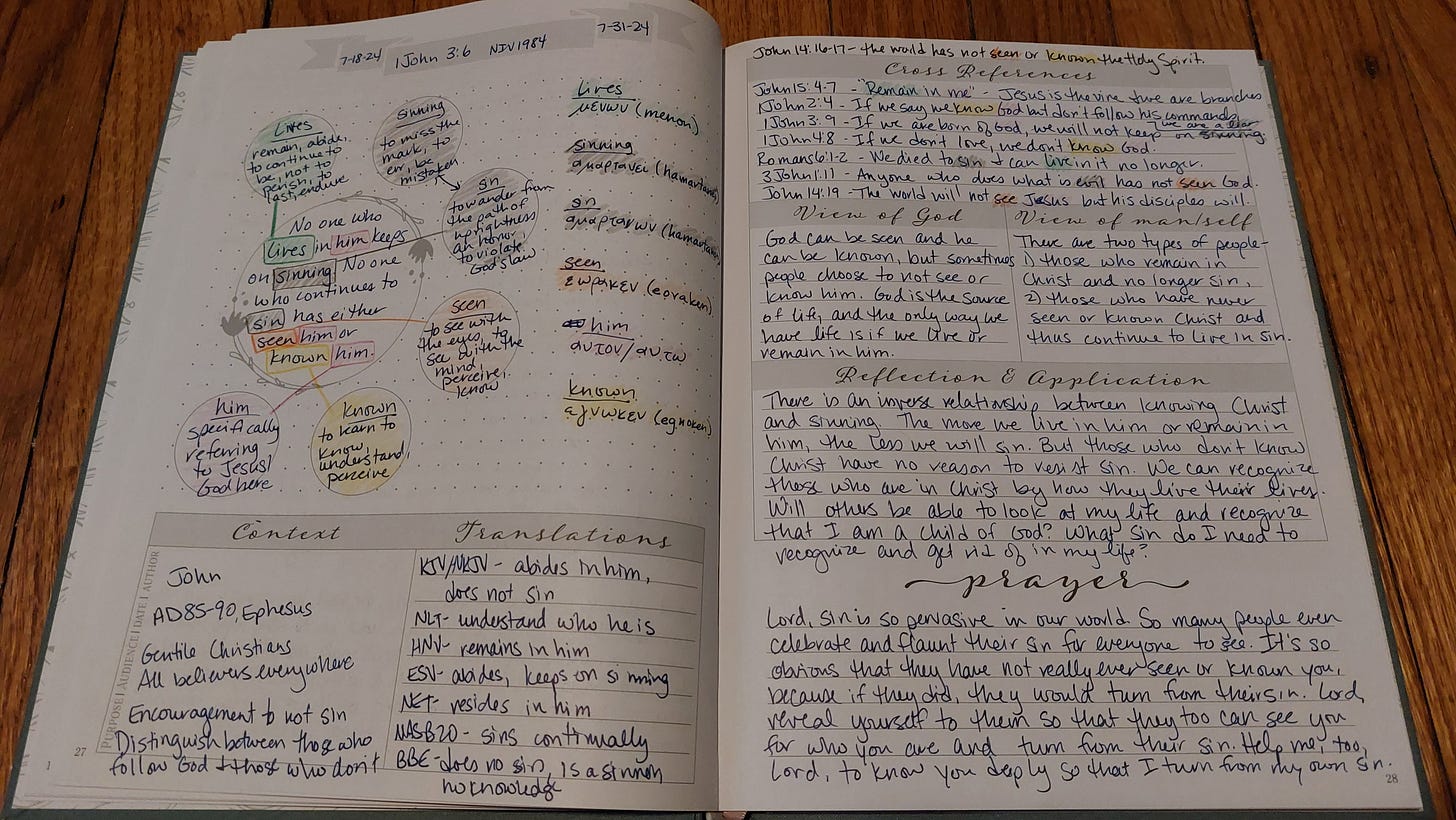 7-18-24
1 John 3:6 NIV1984
7-31-24
Lives
remain, abide,
to continue to
be, not to
perish, to
last, endure
sinning
to miss the
mark, to
err, be
mistaken
sin
to wander from
the path of
uprightness
an honor,
to violate
God's law
No one who
lives in him keeps
on sinning. No one
who continues to
sin has either
seen him or
known him.
seen
to see with
the eyes, to
see with the
mind,
perceive,
know
him
specifically
referring
to Jesus/
God here
known
to learn to
know,
understand,
perceive
lives
μενων (menon)
sinning
αμαρτανει
sin
αμαρτανων
seen
εωρακεν (eoraken)
him
αυτον/αυτω
known
εγνωκεν (egnoken)
Context
PURPOSE | AUDIENCE | DATE | AUTHOR
John
AD85-90, Ephesus
Gentile Christians
All believers everywhere
Encouragement to not sin
Distinguish between those who
follow God + those who don't
Translations
KJV/NKJV - abides in him,
does not sin
NLT- understand who he is
HNV- remains in him
ESV- abides, keeps on sinning
NET- resides in him
NASB20- sins continually
BBE- does no sin, is a sinner
no knowledge
27
1
John 14:16-17- the world has not seen or known the Holy Spirit.
Cross References
John 15:4-7 - "Remain in me" - Jesus is the vine + we are branches
1 John 2:4 - If we say we know God but don't follow his commands, we are a liar
1 John 3:9 - If we are born of God, we will not keep on sinning.
1 John 4:8 - If we don't love, we don't know God.
Romans 6:1-2 - We died to sin + can live in it no longer.
3 John 1:11 - Anyone who does what is evil has not seen God.
John 14:19 - The world will not see Jesus but his disciples will.
View of God
God can be seen and he
can be known, but sometimes
people choose to not see or
know him. God is the source
of life, and the only way we
have life is if we live or
remain in him.
View of man/self
There are two types of people-
1) those who remain in
Christ and no longer sin,
2) those who have never
seen or known Christ and
thus continue to live in sin.
Reflection & Application
There is an inverse relationship between knowing Christ
and sinning. The more we live in him or remain in
him, the less we will sin. But those who don't know
Christ have no reason to resist sin. We can recognize
those who are in Christ by how they live their lives.
Will others be able to look at my life and recognize
that I am a child of God? What sin do I need to
recognize and get rid of in my life?
prayer
Lord, sin is so pervasive in our world. So many people even
celebrate and flaunt their sin for everyone to see. It's so
obvious that they have not really ever seen or known you,
because if they did, they would turn from their sin. Lord,
reveal yourself to them so that they too can see you
for who you are and turn from their sin. Help me, too,
Lord, to know you deeply so that I turn from my own sin.
28